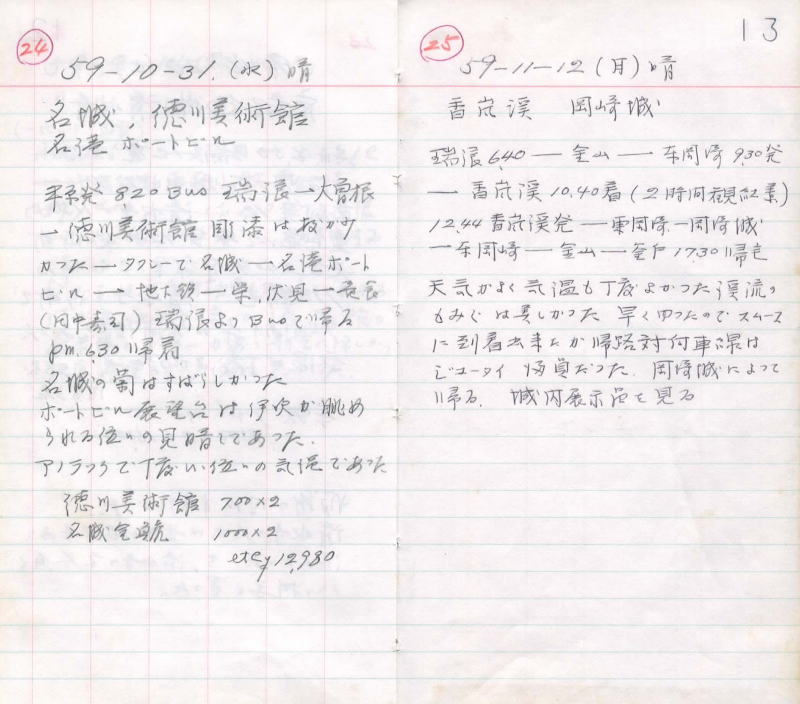 24
59-10-31.(水)晴
名城, 徳川美術館
名港 ポートビル
発 820 Bus 瑞浪→大曽根
→徳川美術館 彫漆は
かった→タクシーで名城→名港ポート
ビル → 地下鉄→栄,伏見→
(田中寿司) 瑞浪よりBusで帰る
pm.6.30帰着
名城の菊はすばらしかった
ポートビル展望台は伊吹が眺め
られる位いの見晴しであった.
アノラックで丁度いい位いの気温であった
徳川美術館 700×2
名城 1000×2
12,980
13
25
59-11-12(月)晴
香嵐渓 岡崎城
瑞浪6.40 — 金山 — 東岡崎 9.30発
— 香嵐渓 10.40着(2時間観紅葉)
12.44 香嵐渓発 — 東岡崎—岡崎城
— 東岡崎 — 金山 — 釜戸 17.30帰宅
天気がよく気温も丁度よかった 渓流の
もみぢは美しかった 早く行ったのでスムース
に到着出来たが帰路対向車線は
ジュータイ 満員だった. 岡崎城によって
帰る. 城内展示品を見る